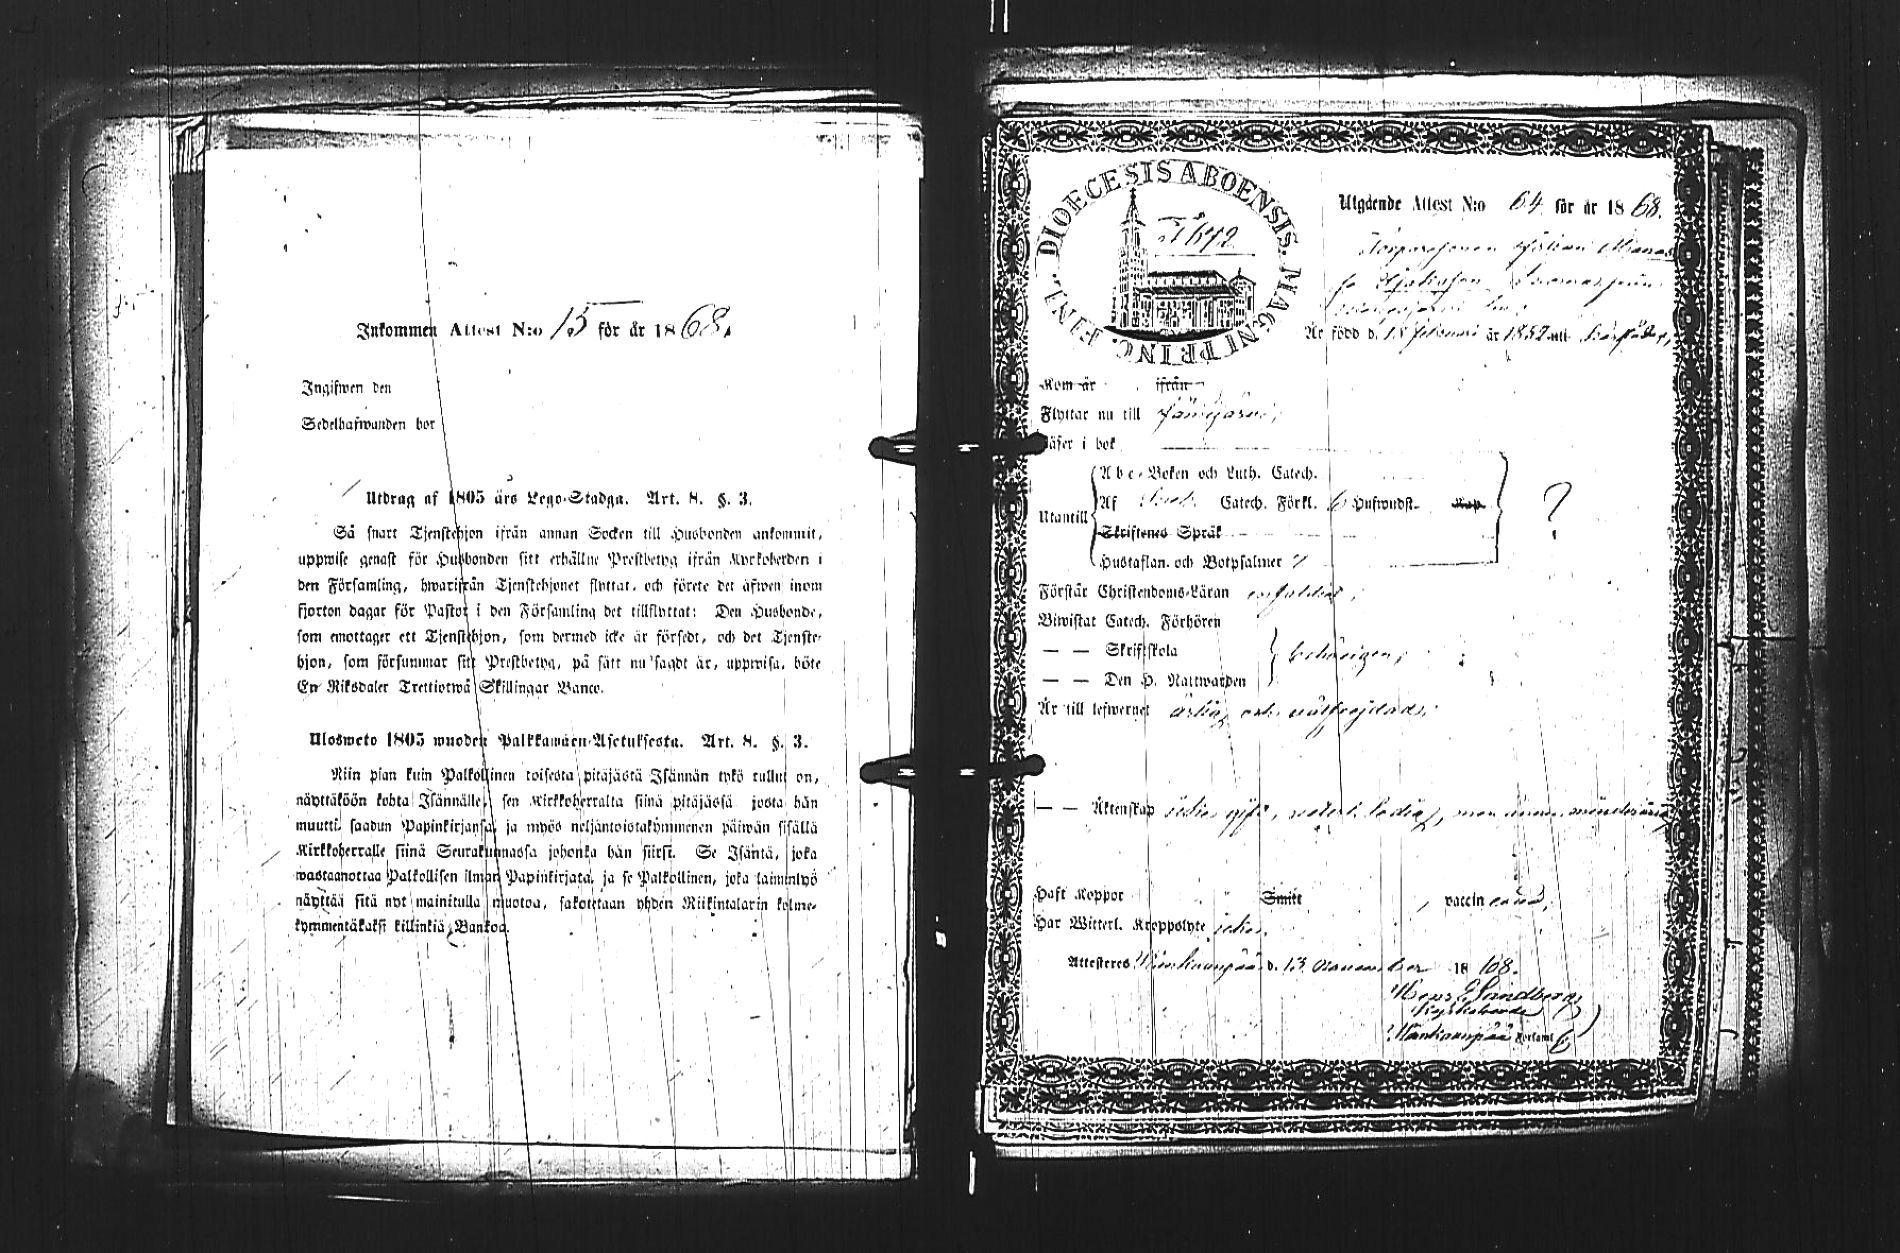 Inkommen Attest N:o 15 för år 1868.
Ingifwen den
Sedelhafwanden bor
Utdrag af 1805 års Lego-Stadga. Art. 8. §. 3.
Så snart Tjenstehjon ifrån annan Socken till Husbonden ankommit,
uppwise genast för Husbonden sitt erhållne Prestbetyg ifrån Kyrkoherden i
den Församling, hwarifrån Tjenstehjonet flyttat, och förete det äfwen inom
fjorton dagar för Pastor i den Församling det tillflyttat: Den Husbonde,
som emottager ett Tjenstehjon, som dermed icke är försedt, och det Tjenste-
hjon, som försummar sitt Prestbetyg, på sätt nu sagdt är, uppwisa, böte
En Riksdaler Trettiotwå Skillingar Banco.
Ulosweto 1805 wuoden Palkkawäen-Asetuksesta. Art. 8. §. 3.
Niin pian kuin Palkollinen toisesta pitäjästä Isännän tykö tullut on,
näyttäköön kohta Isännälle, sen Kirkkoherralta siinä pitäjässä josta hän
muutti, saadun Papinkirjansa, ja myös neljäntoistakymmenen päiwän sisällä
Kirkkoherralle siinä Seurakunnassa johonka hän siirsi. Se Isäntä, joka
wastaanottaa Palkollisen ilman Papinkirjata, ja se Palkollinen, joka laiminlyö
näyttää sitä nyt mainitulla muotoa, sakotetaan yhden Riikintalarin kolme-
kymmentäkaksi killinkiä Bankoa.
DIOECESIS ABOENSIS. MAGNI PRINC. FINL.
Utgående Attest N:o 64 för år 1868.
Johan
År född d. 18 februari år 1852 uti
Kom år ifrån
Flyttar nu till Jämijärvi,
Läser i bok
Utantill
A b c-Boken och Luth. Catech.
Af Catech. Förkl. 6 Hufwudst. Kap
Skriftenes Språk
Hustaflan och Botpsalmer
?
Förstår Christendoms-Läran
Biwistat Catech. Förhören
— — Skriftskola
— — Den H. Nattwarden
behörigen,
Är till lefwernet ärlig och välfrejdad,
— — Äktenskap icke gift, ledig, men ännu minderårig
Haft Koppor Smitt vaccin
Har Witterl. Kroppslyte icke.
Attesteras Kankaanpää d. 13 november 1868.
Sandberg
Kyrkoherde
Kankaanpää Församl